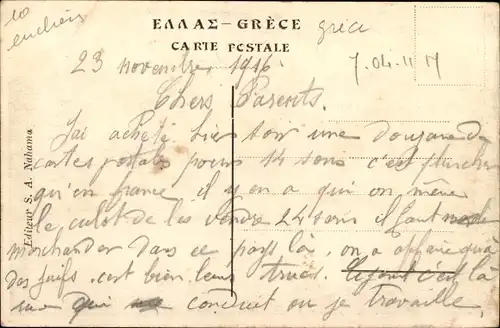 10
encheis
ΕΛΛΑΣ-GRÈCE
grèce
CARTE POSTALE
23 novembre 1916
7.04.11
Chers Parents.
J'ai acheté hier soir une Douzaine de
cartes postales pour 14 sous c'est plus cher
qu'en france il y en a qui on même
le culot de les vendre 24 sous il faut
marchander dans ce pays là. on a affaire qu'à
des juifs. c'est bien leurs trucs. là
rue qui conduit ou je travaille
Editeur S. A. Nahama